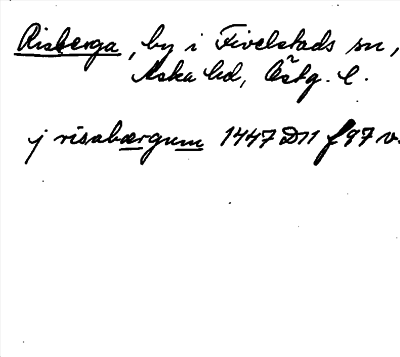 Risberga, by i Fivelstads sn,
Aska hd, Östg. l.
j risabærgum 1447 D11 f 97 v.